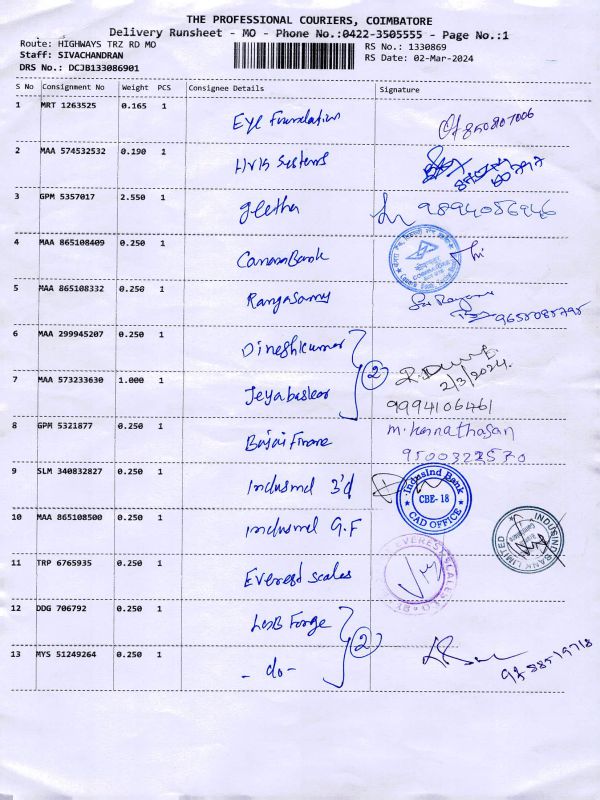 THE PROFESSIONAL COURIERS, COIMBATORE
Delivery Runsheet - MO - Phone No.:0422-3505555 - Page No.:1
Route: HIGHWAYS TRZ RD MO
RS No.: 1330869
Staff: SIVACHANDRAN
RS Date: 02-Mar-2024
DRS No.: DCJB133086901
S No Consignment No Weight PCS Consignee Details Signature
1 MRT 1263525 0.165 1 Eye Foundation
2 MAA 574532532 0.190 1 Systems
3 GPM 5357017 2.550 1 Geetha 9894056946
4 MAA 865108409 0.250 1 Canara Bank
COIMBATORE
5 MAA 865108332 0.250 1 Rangasamy
9655085795
6 MAA 299945207 0.250 1 Dineshkumar
2
2/3/2024.
7 MAA 573233630 1.000 1 Jeyabaskar
9994106461
8 GPM 5321877 0.250 1 Bajaj Finance m. Kannathasan
9500322570
9 SLM 340832827 0.250 1 Indusind 3'd
IndusInd Bank
CBE-18
CAD OFFICE
10 MAA 865108500 0.250 1 Indusind G.F
INDUSIND BANK LIMITED
11 TRP 6765935 0.250 1 Everest Scales
EVEREST SCALES
12 DDG 706792 0.250 1 Forge
2
13 MYS 51249264 0.250 1 - do -